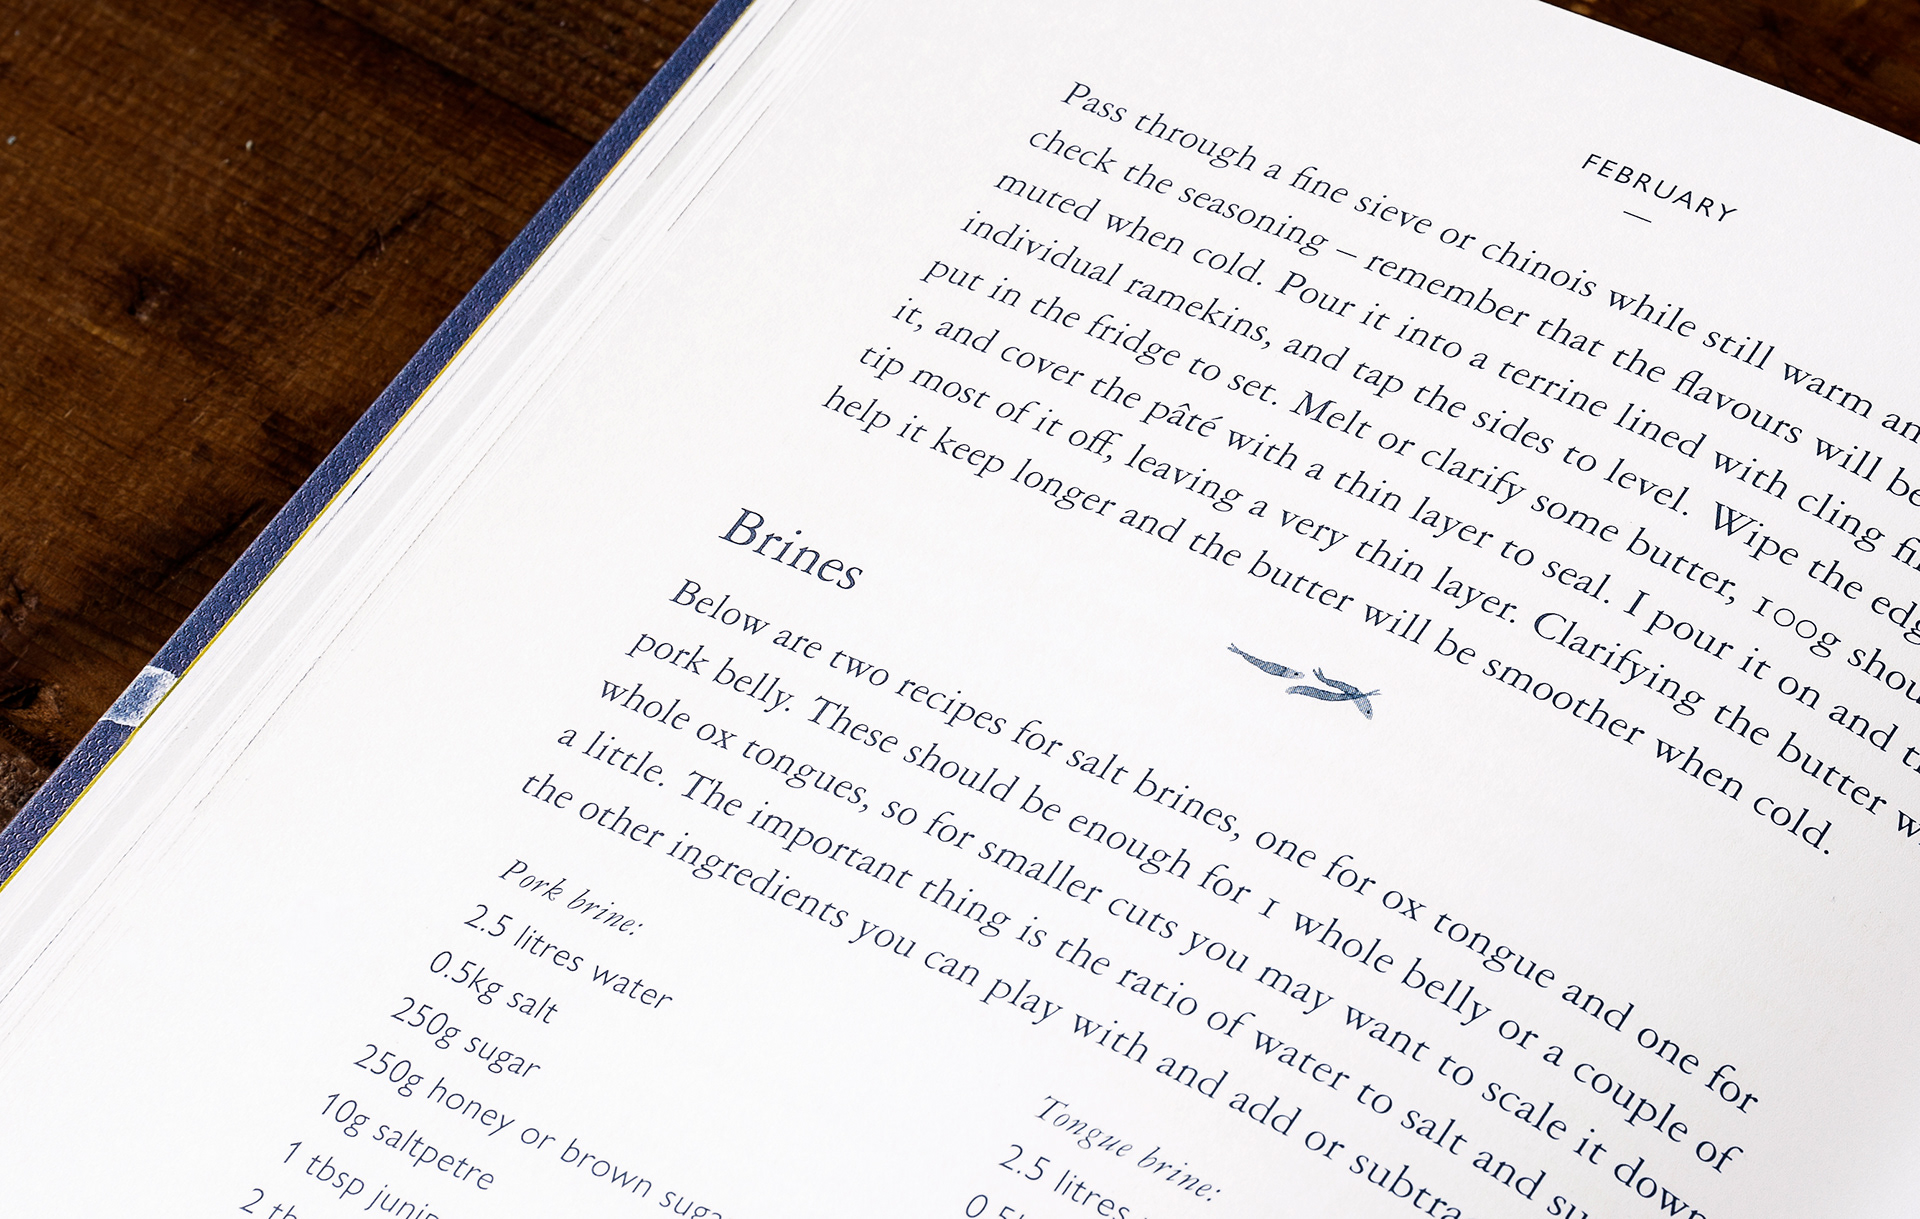 FEBRUARY
Pass through a fine sieve or chinois while still warm
check the seasoning – remember that the flavours will be
muted when cold. Pour it into a terrine lined with cling
individual ramekins, and tap the sides to level. Wipe the
put in the fridge to set. Melt or clarify some butter, 100g
it, and cover the pâté with a thin layer to seal. I pour it on and
tip most of it off, leaving a very thin layer. Clarifying the butter
help it keep longer and the butter will be smoother when cold.
Brines
Below are two recipes for salt brines, one for ox tongue and one for
pork belly. These should be enough for 1 whole belly or a couple of
whole ox tongues, so for smaller cuts you may want to scale it down
a little. The important thing is the ratio of water to salt and
the other ingredients you can play with and add or
Pork brine:
2.5 litres water
0.5kg salt
250g sugar
250g honey or brown
10g saltpetre
1 tbsp
2
Tongue brine:
2.5 litres